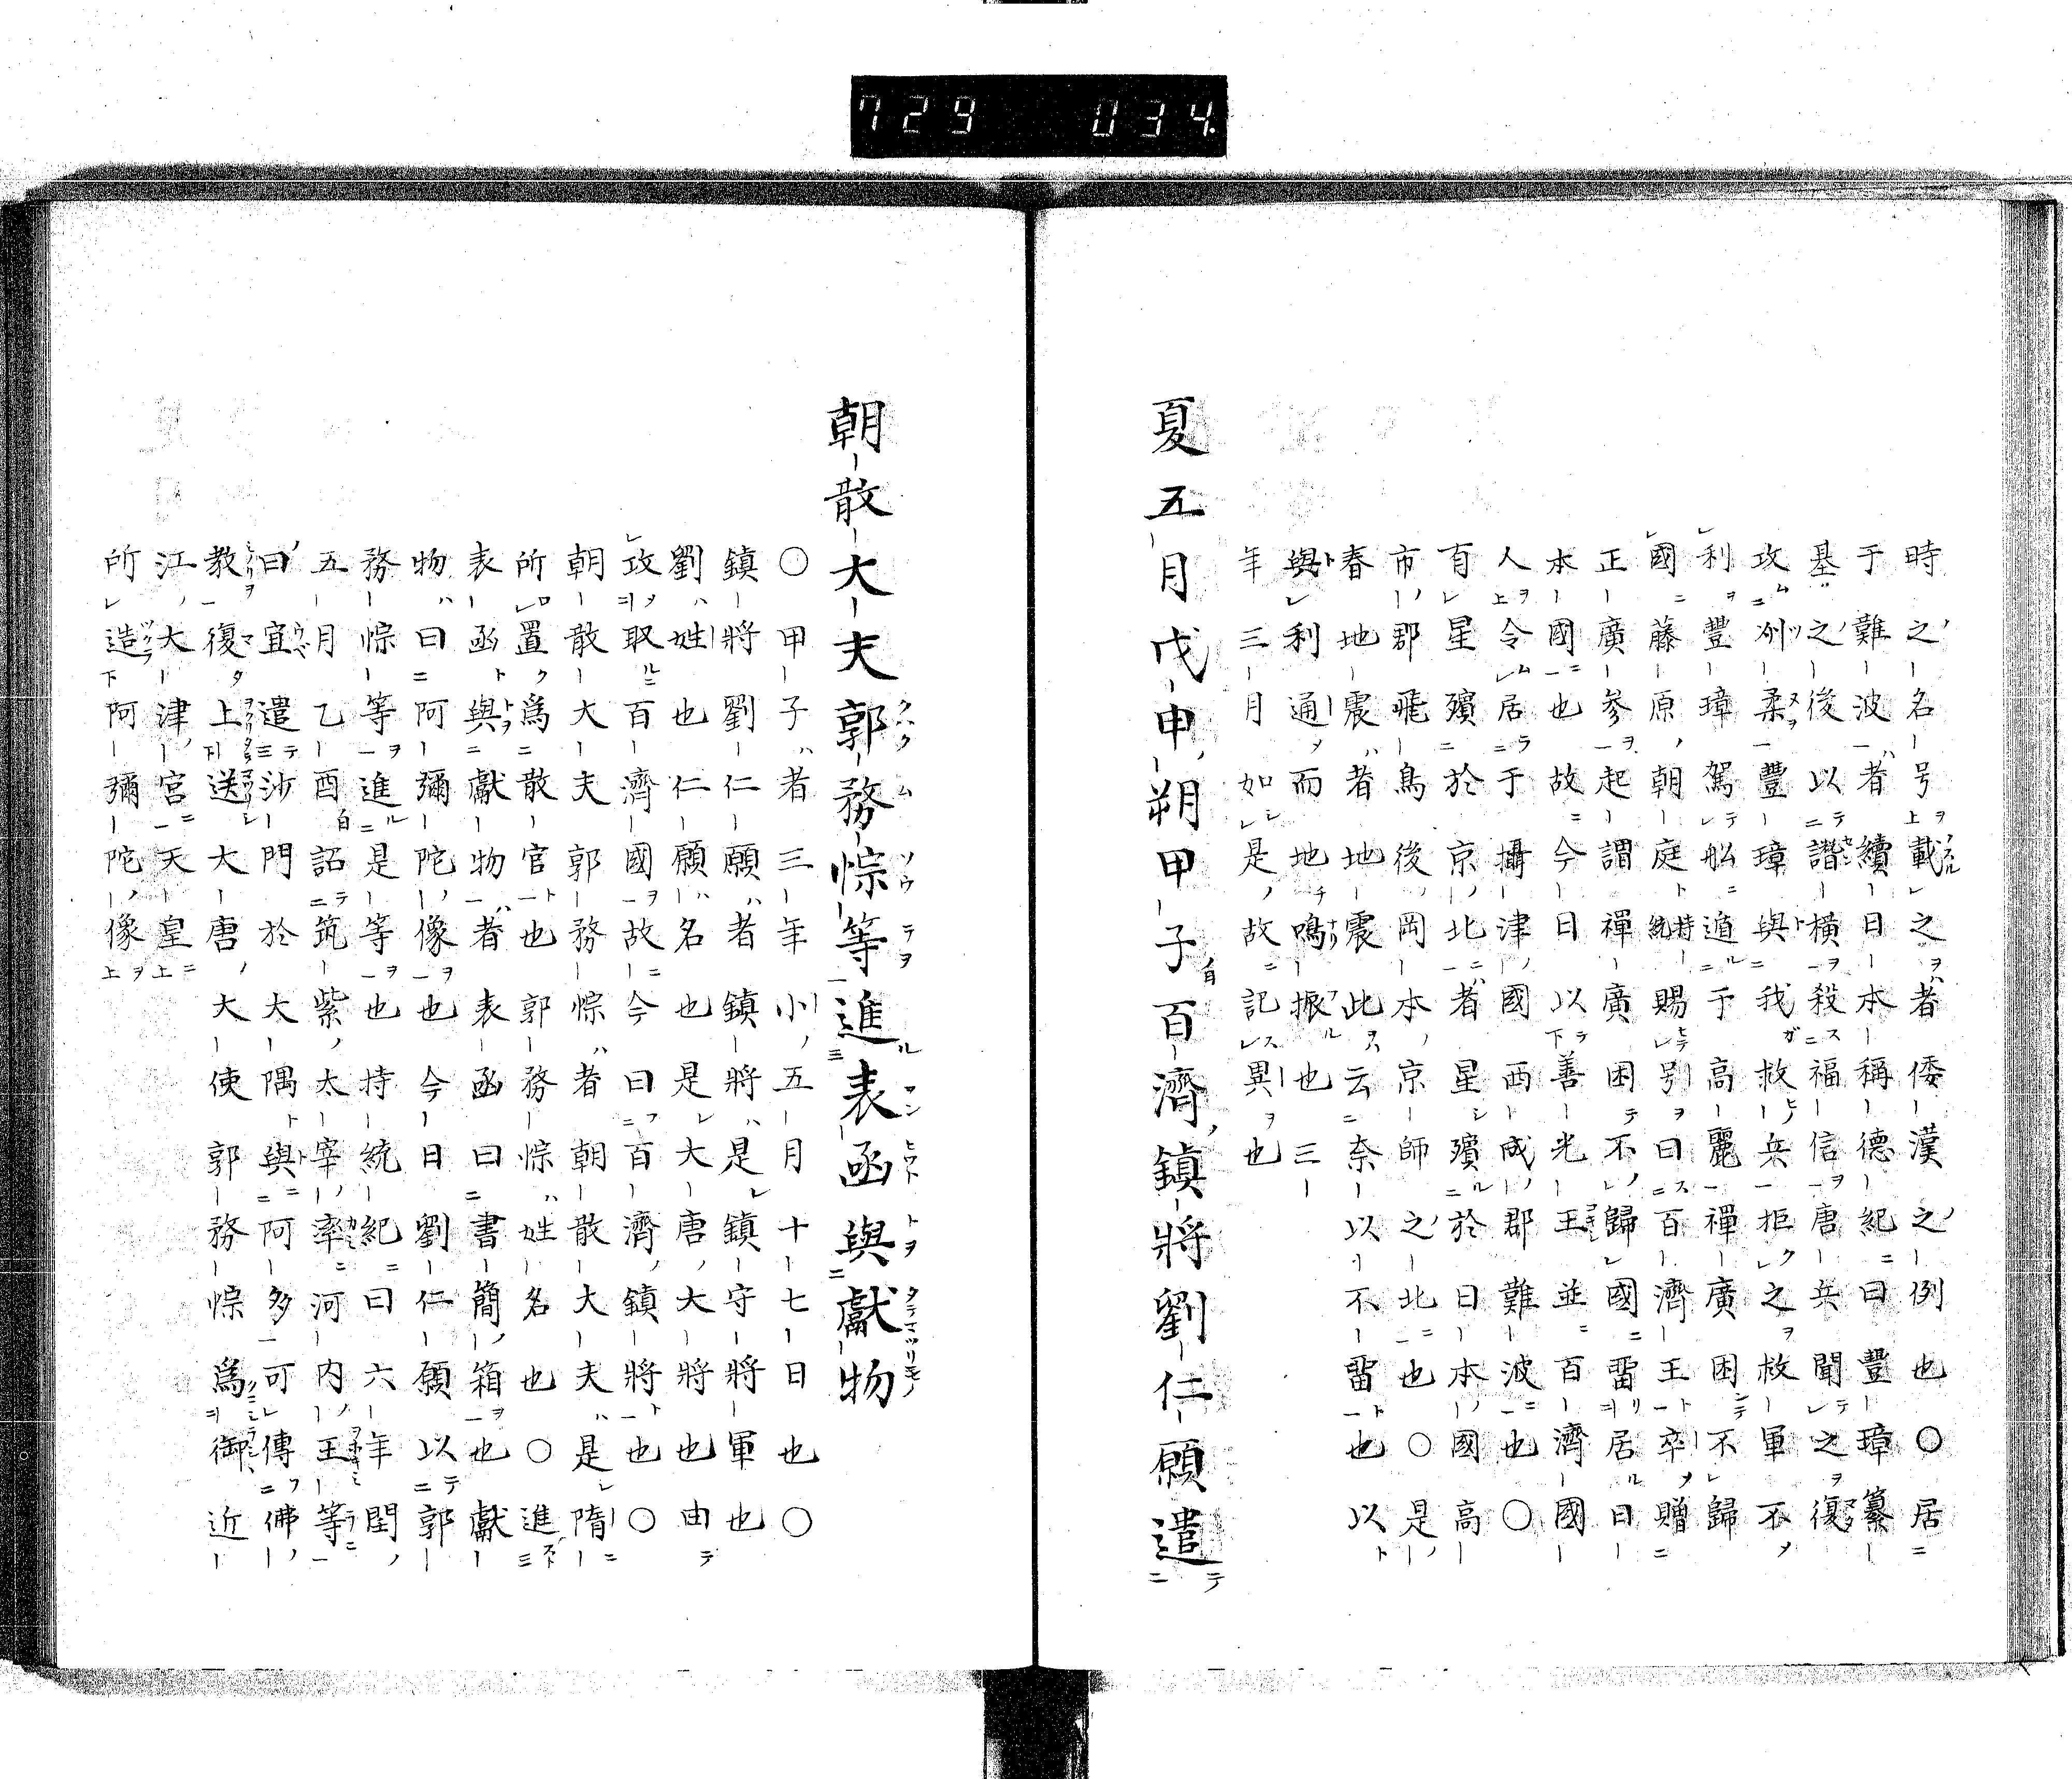 729 034.
時之名号載之者倭漢之例也〇居
于難波者續日本稱德紀曰豐璋纂
基之後以譖橫殺福信唐兵聞之復
攻冽柔豐璋與我救兵拒之救軍不
利豐璋駕舩遁于高麗禪廣因不歸
國藤原朝庭持統賜号曰百濟王卒贈
正廣參起謂禪廣困不歸國畱居日
本國也故今日以善光王並百濟國
人令居于攝津國西成郡難波也〇
百星殞於京北者星殞於日本國高
市郡飛鳥後岡本京師之北也〇是
春地震者地震此云奈以不畱也以
與利通而地鳴振也三
年三月如是故記異也
夏五月戊申朔甲子百濟鎮將劉仁願遣
朝散大夫郭務悰等進表函與獻物
〇甲子者三年小五月十七日也〇
鎮將劉仁願者鎮將是鎮守將軍也
劉姓也仁願名也是大唐大將也由
攻取百濟國故今曰百濟鎮將也〇
朝散大夫郭務悰者朝散大夫是隋
所置爲散官也郭務悰姓名也〇進
表函與獻物者表函曰書簡箱也獻
物曰阿彌陀像也今日劉仁願以郭
務悰等進是等也持統紀曰六年閏
五月乙酉詔筑紫太宰率河内王等
曰宜遣沙門於大隅與阿多可傳佛
教復上送大唐大使郭務悰爲御近
江大津宮天皇
所造阿彌陀像